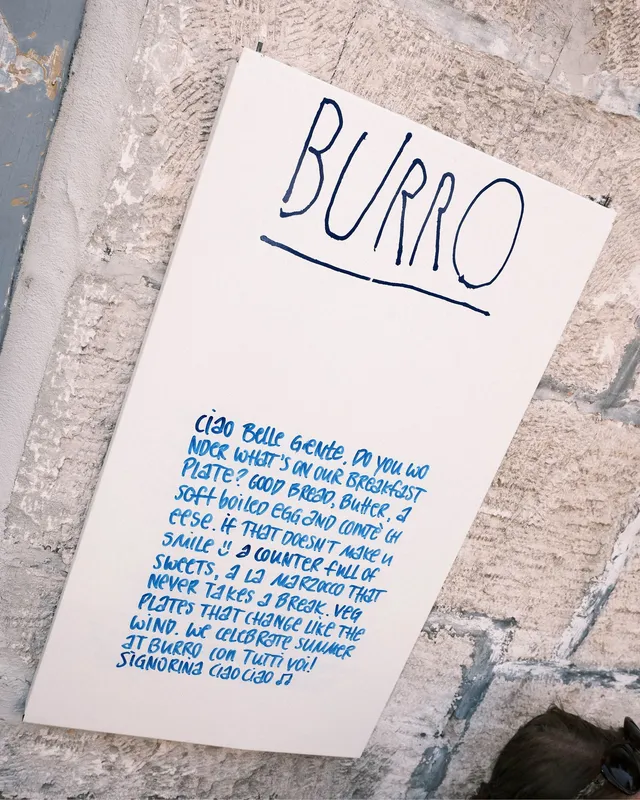 BURRO
Ciao Belle Gente. Do you wo
nder what's on our breakfast
plate? Good bread, butter, a
soft boiled egg and comtè ch
eese. If that doesn't make u
smile ☺ a counter full of
sweets, a La Marzocco that
never takes a break. Veg
plates that change like the
wind. We celebrate summer
at Burro con tutti voi!
Signorina ciao ciao ♫